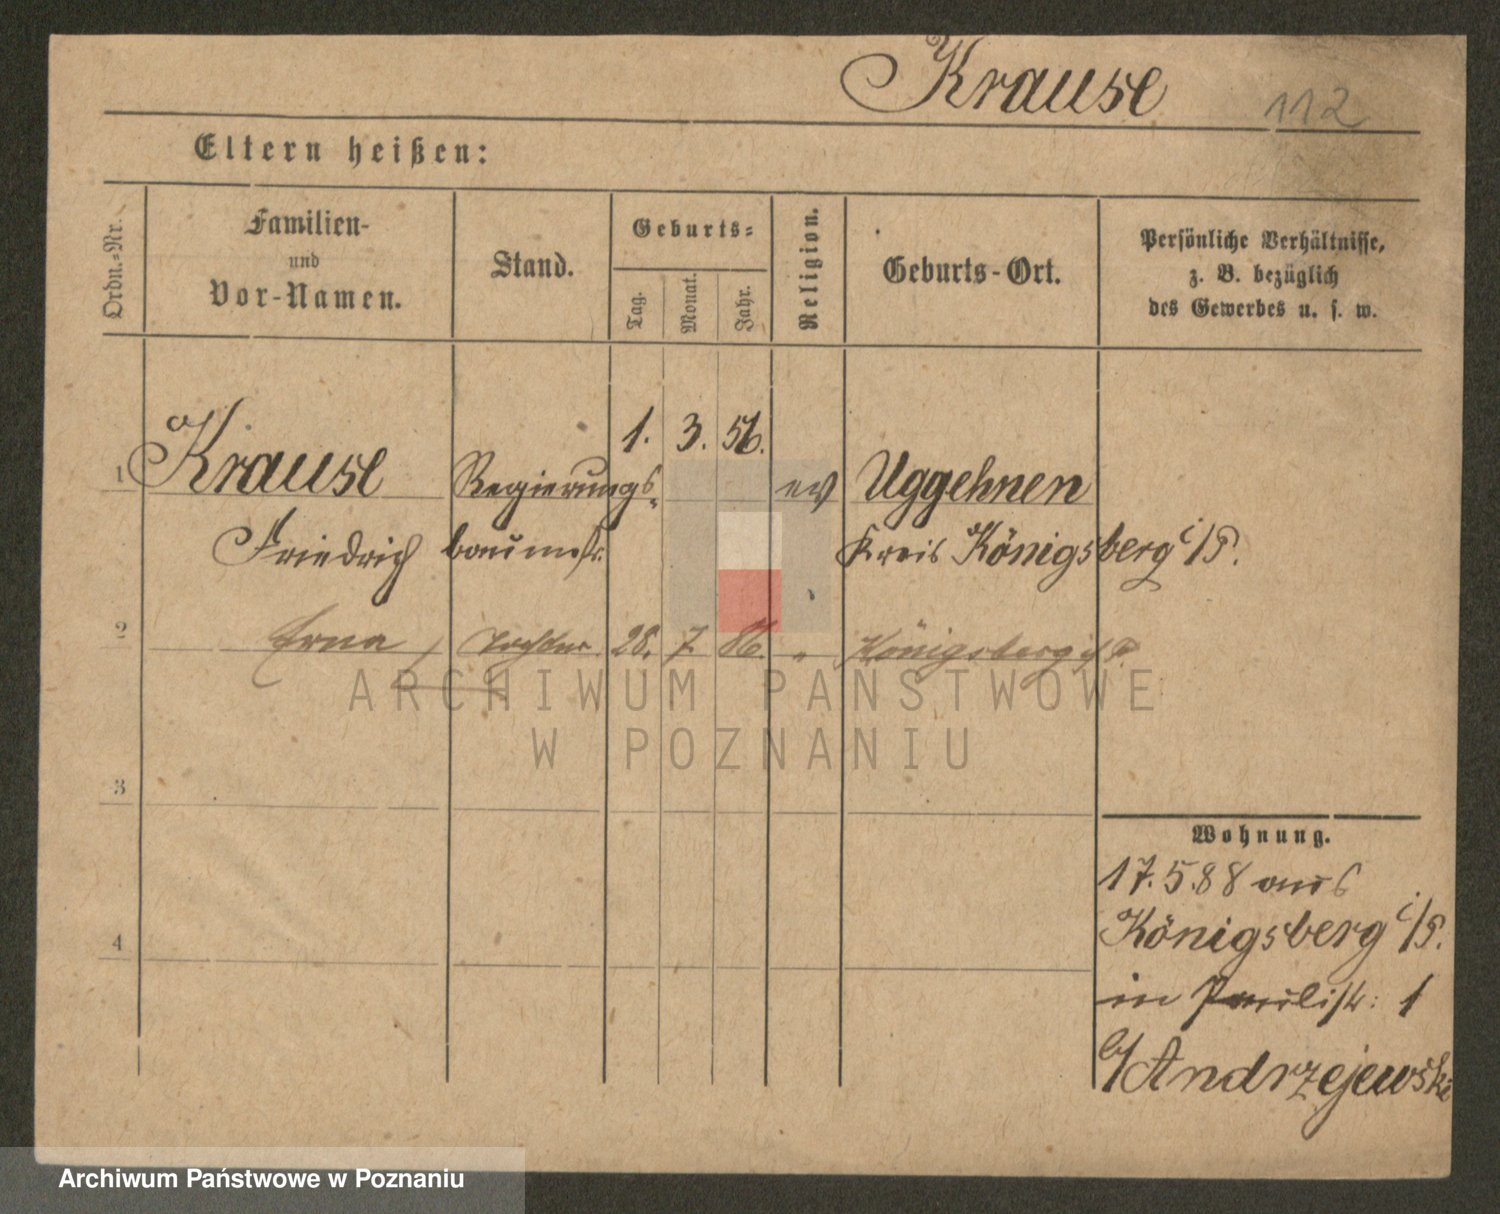 Krause 112
Eltern heißen:
Ordn.-Nr.
Familien-
und
Vor-Namen.
Stand.
Geburts-
Tag.
Monat.
Jahr.
Religion.
Geburts-Ort.
Persönliche Verhältnisse,
z. B. bezüglich
des Gewerbes u. s. w.
1 Krause Regierungs 1. 3. 56. ev Uggehnen
Friedrich baumstr. Kreis Königsberg i/P.
2 Erna, Tochter 28. 7. 86. " Königsberg i/P.
ARCHIWUM PAŃSTWOWE
W POZNANIU
3
Wohnung.
17.5.88 aus
Königsberg i/P.
4
in Paulistr: 1
b/Andrzejewski
Archiwum Państwowe w Poznaniu